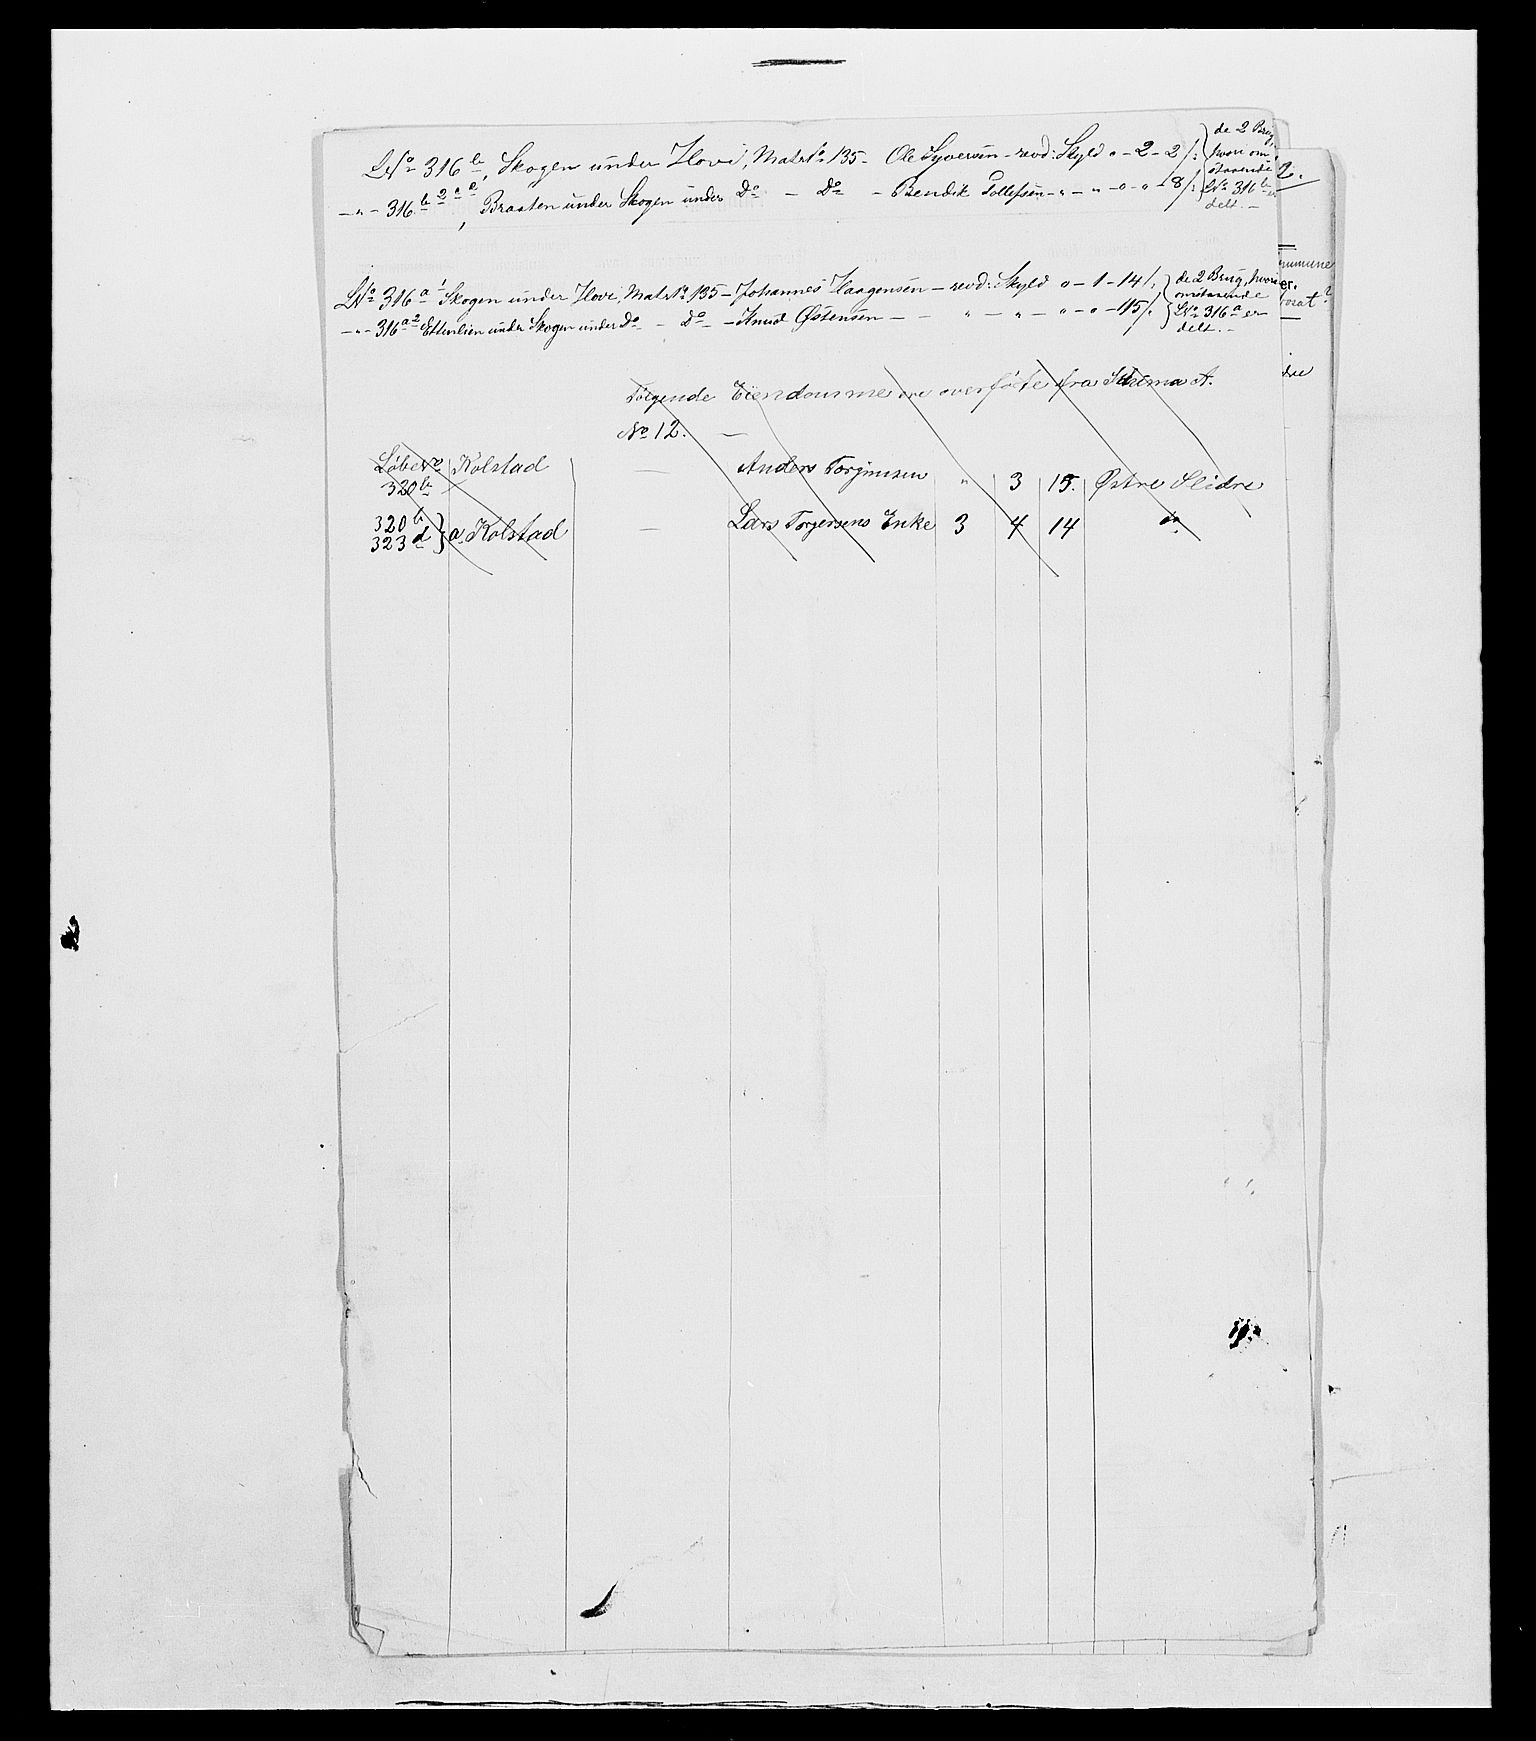 LNo 316 b, Skogen under Hovi, Matr No 135 - Ole Syversen - revd: Skyld " - 2 - 2 /:
de 2 Brug, hvori om-
staaende
LNo 316 b er
delt. -
- " - 316 b 2, Braaten under Skogen under Do - Do - Bendik Tollefsen - " - " - " - " - 8 /:
2.
LNo 316 a 1 Skogen under Hovi, Matr No 135 - Johannes Haagensen - revd: Skyld " - 1 - 14 /:
de 2 Brug, hvori
omstaaende
LNo 316 a er
delt. -
- " - 316 a 2 under Skogen under Do - Do - Knud Østensen - - " - " - " - " - 15 /:
Følgende Eiendomme ere overførte fra Schema A.
No 12. -
Løbe No Kolstad - Anders Torgrimsen " 3 15. Østre Slidre
320 b
320 b
323 d } a Kolstad - Lars Torgersens Enke 3 4 14 do